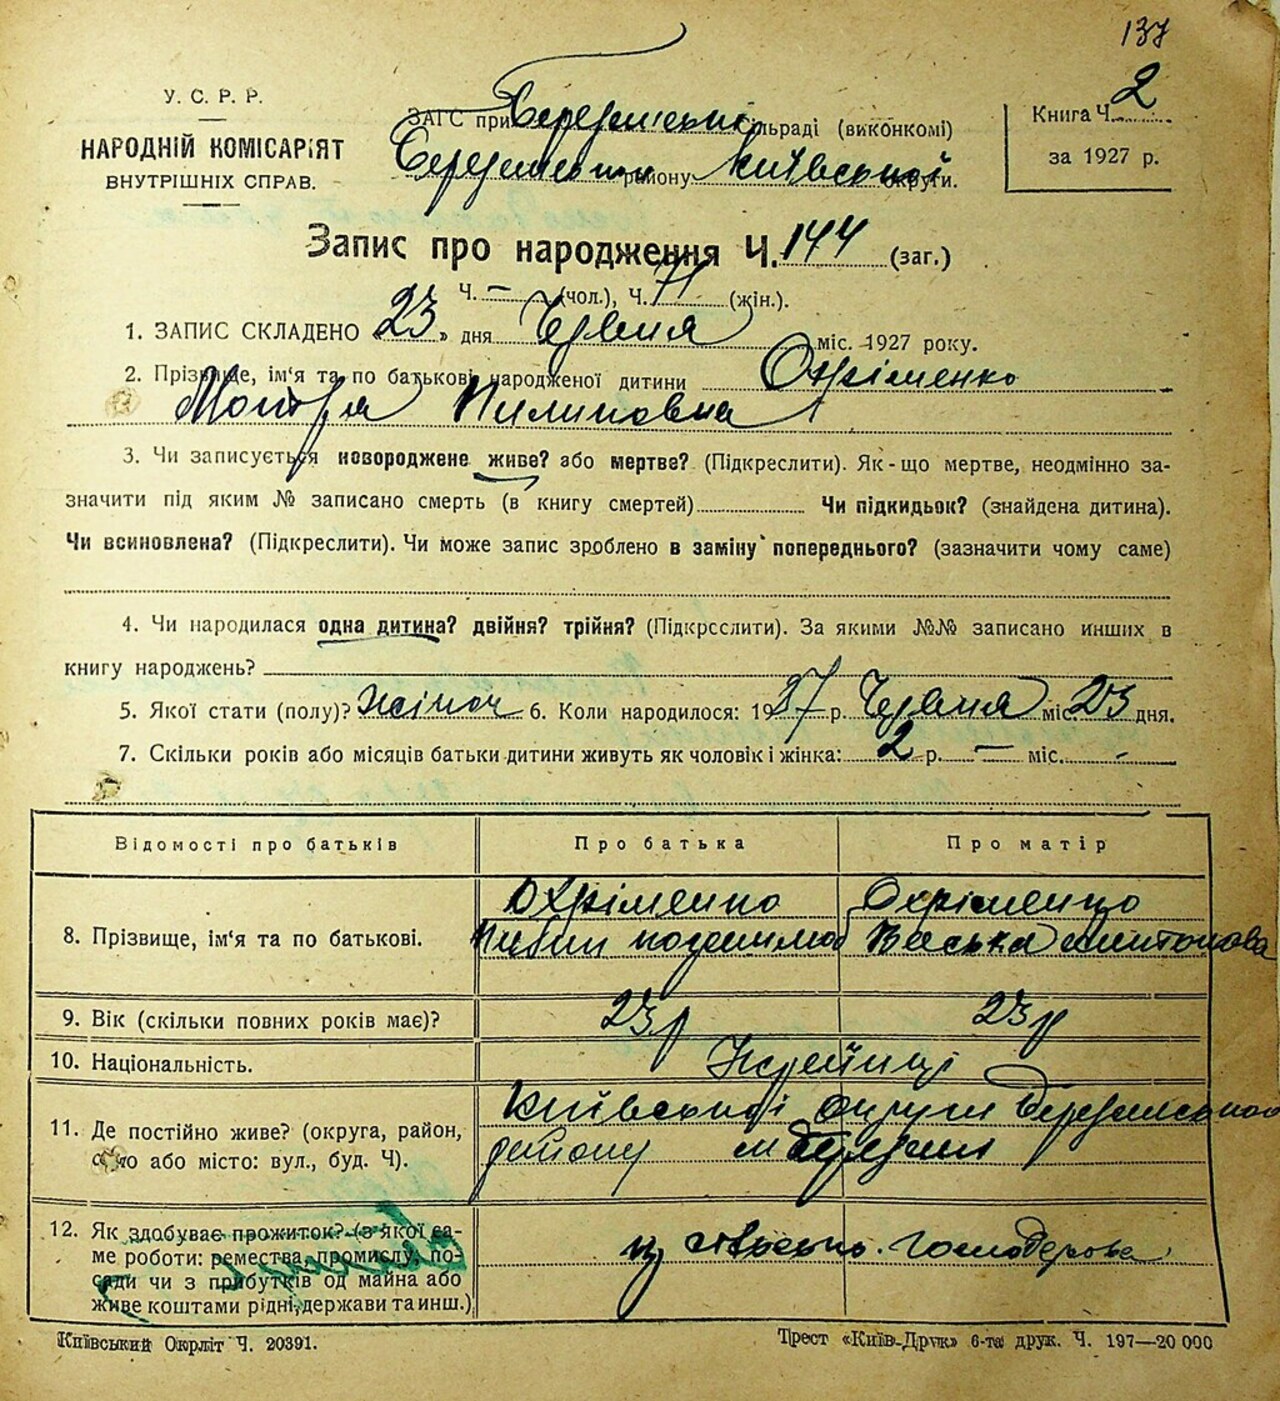 137
У. С. Р. Р.
НАРОДНІЙ КОМІСАРІЯТ
ВНУТРІШНІХ СПРАВ.
ЗАГС при сільраді (виконкомі)
району Київської округи.
Книга Ч. 2
за 1927 р.
Запис про народження Ч. 144 (заг.)
Ч. – (чол.), Ч. 71 (жін.).
1. ЗАПИС СКЛАДЕНО «23» дня Червня міс. 1927 року.
2. Прізвище, ім'я та по батькові народженої дитини Охріменко
Мотря Пилиповна
3. Чи записується новороджене живе? або мертве? (Підкреслити). Як-що мертве, неодмінно за-
значити під яким № записано смерть (в книгу смертей) Чи підкидьок? (знайдена дитина).
Чи всиновлена? (Підкреслити). Чи може запис зроблено в заміну попереднього? (зазначити чому саме)
4. Чи народилася одна дитина? двійня? трійня? (Підкреслити). За якими №№ записано инших в
книгу народжень?
5. Якої стати (полу)? жіноч 6. Коли народилося: 1927 р. Червня міс. 23 дня.
7. Скільки років або місяців батьки дитини живуть як чоловік і жінка: 2 р. – міс. -
Відомості про батьків Про батька Про матір
8. Прізвище, ім'я та по батькові. Охріменко Охріменко
9. Вік (скільки повних років має)? 23 р 23 р
10. Національність.
11. Де постійно живе? (округа, район, Київської округи
село або місто: вул., буд. Ч). району
12. Як здобуває прожиток? (з якої са-
ме роботи: ремества, промислу, по-
сади чи з прибутків од майна або
живе коштами рідні, держави та инш.)
Київський Окрліт Ч. 20391.
Трест «Київ-Друк» 6-та друк. Ч. 197—20 000